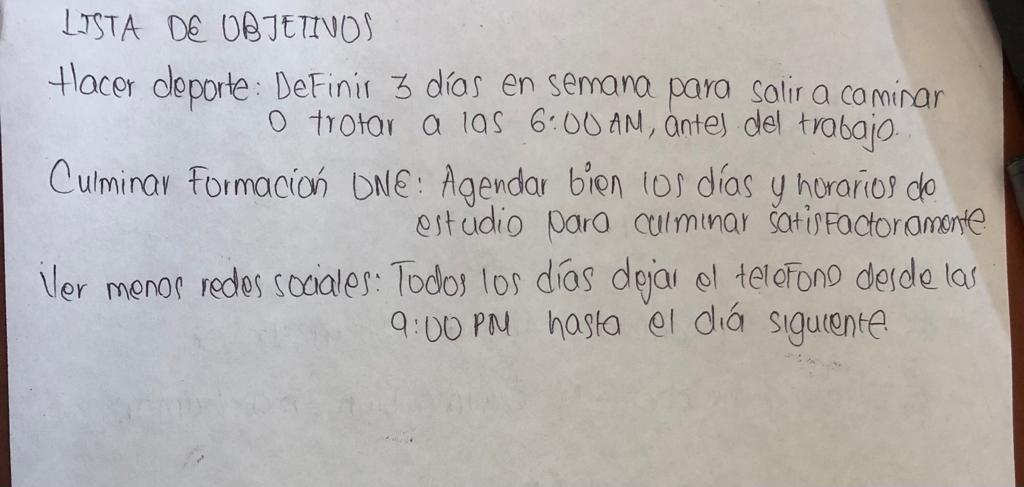 LISTA DE OBJETIVOS
Hacer deporte: Definir 3 días en semana para salir a caminar
O trotar a las 6:00 AM, antes del trabajo.
Culminar Formación ONE: Agendar bien los días y horarios de
estudio para culminar satisfactoramente
Ver menos redes sociales: Todos los días dejar el telefono desde las
9:00 PM hasta el diá siguiente